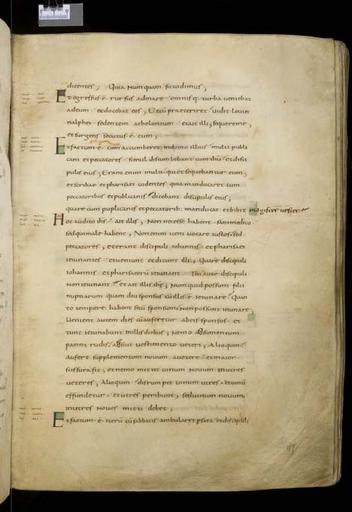 dicentes; Quia numquam sic vidimus;
Et egressus ē rursus ad mare omnisq; turba veniebat
ad eum et docebat eos; Et cū praeteriret vidit levin
alphei sedentem ad teloneum et ait illi; sequere me;
et surgens secutus ē eum;
Et factum ē cum accumberet in domo illius multi publi
cani et peccatores simul discumbebant cum ihu et disci
pulis eius; Erant enim multi qui et sequebantur eum;
et scribae et pharisaei videntes quia manducaret cum
peccatoribus et publicanis dicebant discipulis eius;
quare cum publicanis et peccatorib: manducat et bibit magister vester
Hoc audito ihs ait illis; Non necesse habent sani medico
sed qui male habent; Non enim veni vocare iustos sed
peccatores; et erant discipuli iohannis et pharisaei
ieiunantes et veniunt et dicunt illi; Quare discipuli
iohannis et pharisaeorū ieiunant tui autē discipuli
non ieiunant et ait illis ihs; Numquid possunt filii
nuptiarum quam diu sponsus cū illis ē ieiunare Quan
to tempore habent secū sponsum non possunt ieiunare
Venient autem dies cū auferetur ab eis sponsus et
tunc ieiunabunt in illis diebus; Nemo adsumentum
panni rudis adsuit vestimento veteri; Alioquin
aufert supplementum novum a veteri et maior
scissura fit; et nemo mittit vinum novum in utres
veteres; Alioquin disrumpet vinum utres et vinū
effundetur et utres peribunt; sed vinum novum
in utres novos mitti debet;
Et factum ē iterū cū sabbatis ambularet p sata et discipuli